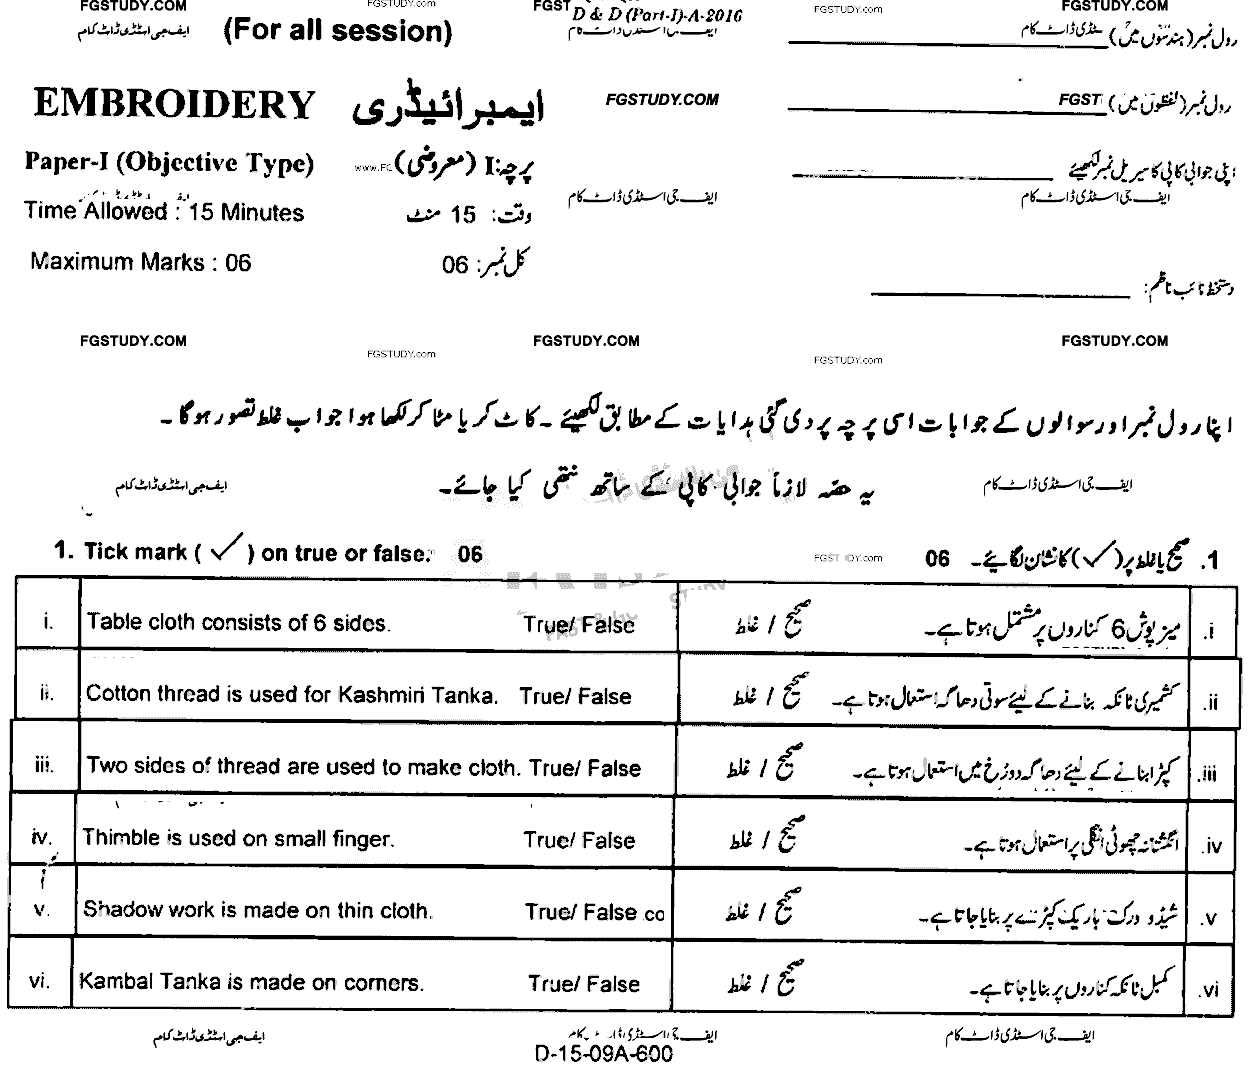 FGSTUDY.COM FGSTUDY.com FGST D & D (Part-I)-A-2016 FGSTUDY.com FGSTUDY.COM
ایف جی اسٹڈی ڈاٹ کام (For all session) رول نمبر (ہندسوں میں) سٹڈی ڈاٹ کام
EMBROIDERY ایمبرائیڈری FGSTUDY.COM رول نمبر (لفظوں میں) FGST
Paper-I (Objective Type) پرچہ: I (معروضی) اپنی جوابی کاپی کا سیریل نمبر لکھیئے
ایف جی اسٹڈی ڈاٹ کام ایف جی اسٹڈی ڈاٹ کام
Time Allowed : 15 Minutes وقت: 15 منٹ
Maximum Marks : 06 کل نمبر: 06
دستخط نائب ناظم:
FGSTUDY.COM FGSTUDY.com FGSTUDY.COM FGSTUDY.com FGSTUDY.COM
اپنا رول نمبر اور سوالوں کے جوابات اسی پرچہ پر دی گئی ہدایات کے مطابق لکھیئے ۔ کاٹ کر یا مٹا کر لکھا ہوا جواب غلط تصور ہوگا ۔
ایف جی اسٹڈی ڈاٹ کام یہ حصّہ لازماً جوابی کاپی کے ساتھ نتھی کیا جائے۔ ایف جی اسٹڈی ڈاٹ کام
1. Tick mark ( ✓ ) on true or false. 06 1. صحیح یا غلط پر (✓) کا نشان لگائیے۔ 06
i. Table cloth consists of 6 sides. True/ False صحیح / غلط میز پوش 6 کناروں پر مشتمل ہوتا ہے۔ .i
ii. Cotton thread is used for Kashmiri Tanka. True/ False صحیح / غلط کشمیری ٹانکہ بنانے کے لیئے سوتی دھاگہ استعمال ہوتا ہے۔ .ii
iii. Two sides of thread are used to make cloth. True/ False صحیح / غلط کپڑا بنانے کے لیئے دھاگہ دو رُخ میں استعمال ہوتا ہے۔ .iii
iv. Thimble is used on small finger. True/ False صحیح / غلط انگشتانہ چھوٹی انگلی پر استعمال ہوتا ہے۔ .iv
v. Shadow work is made on thin cloth. True/ False co صحیح / غلط شیڈو ورک باریک کپڑے پر بنایا جاتا ہے۔ .v
vi. Kambal Tanka is made on corners. True/ False صحیح / غلط کمبل ٹانکہ کناروں پر بنایا جاتا ہے۔ .vi
ایف جی اسٹڈی ڈاٹ کام ایف جی اسٹڈی ڈاٹ کام ایف جی اسٹڈی ڈاٹ کام
D-15-09A-600